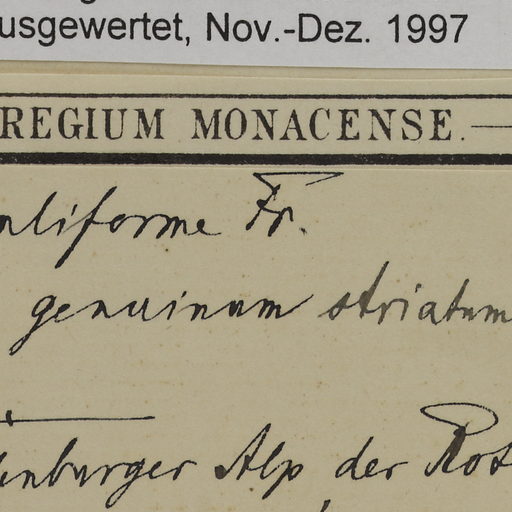 usgewertet, Nov.-Dez. 1997
REGIUM MONACENSE.
aliforme Fr.
genuinum striatum
enburger Alp der Rot